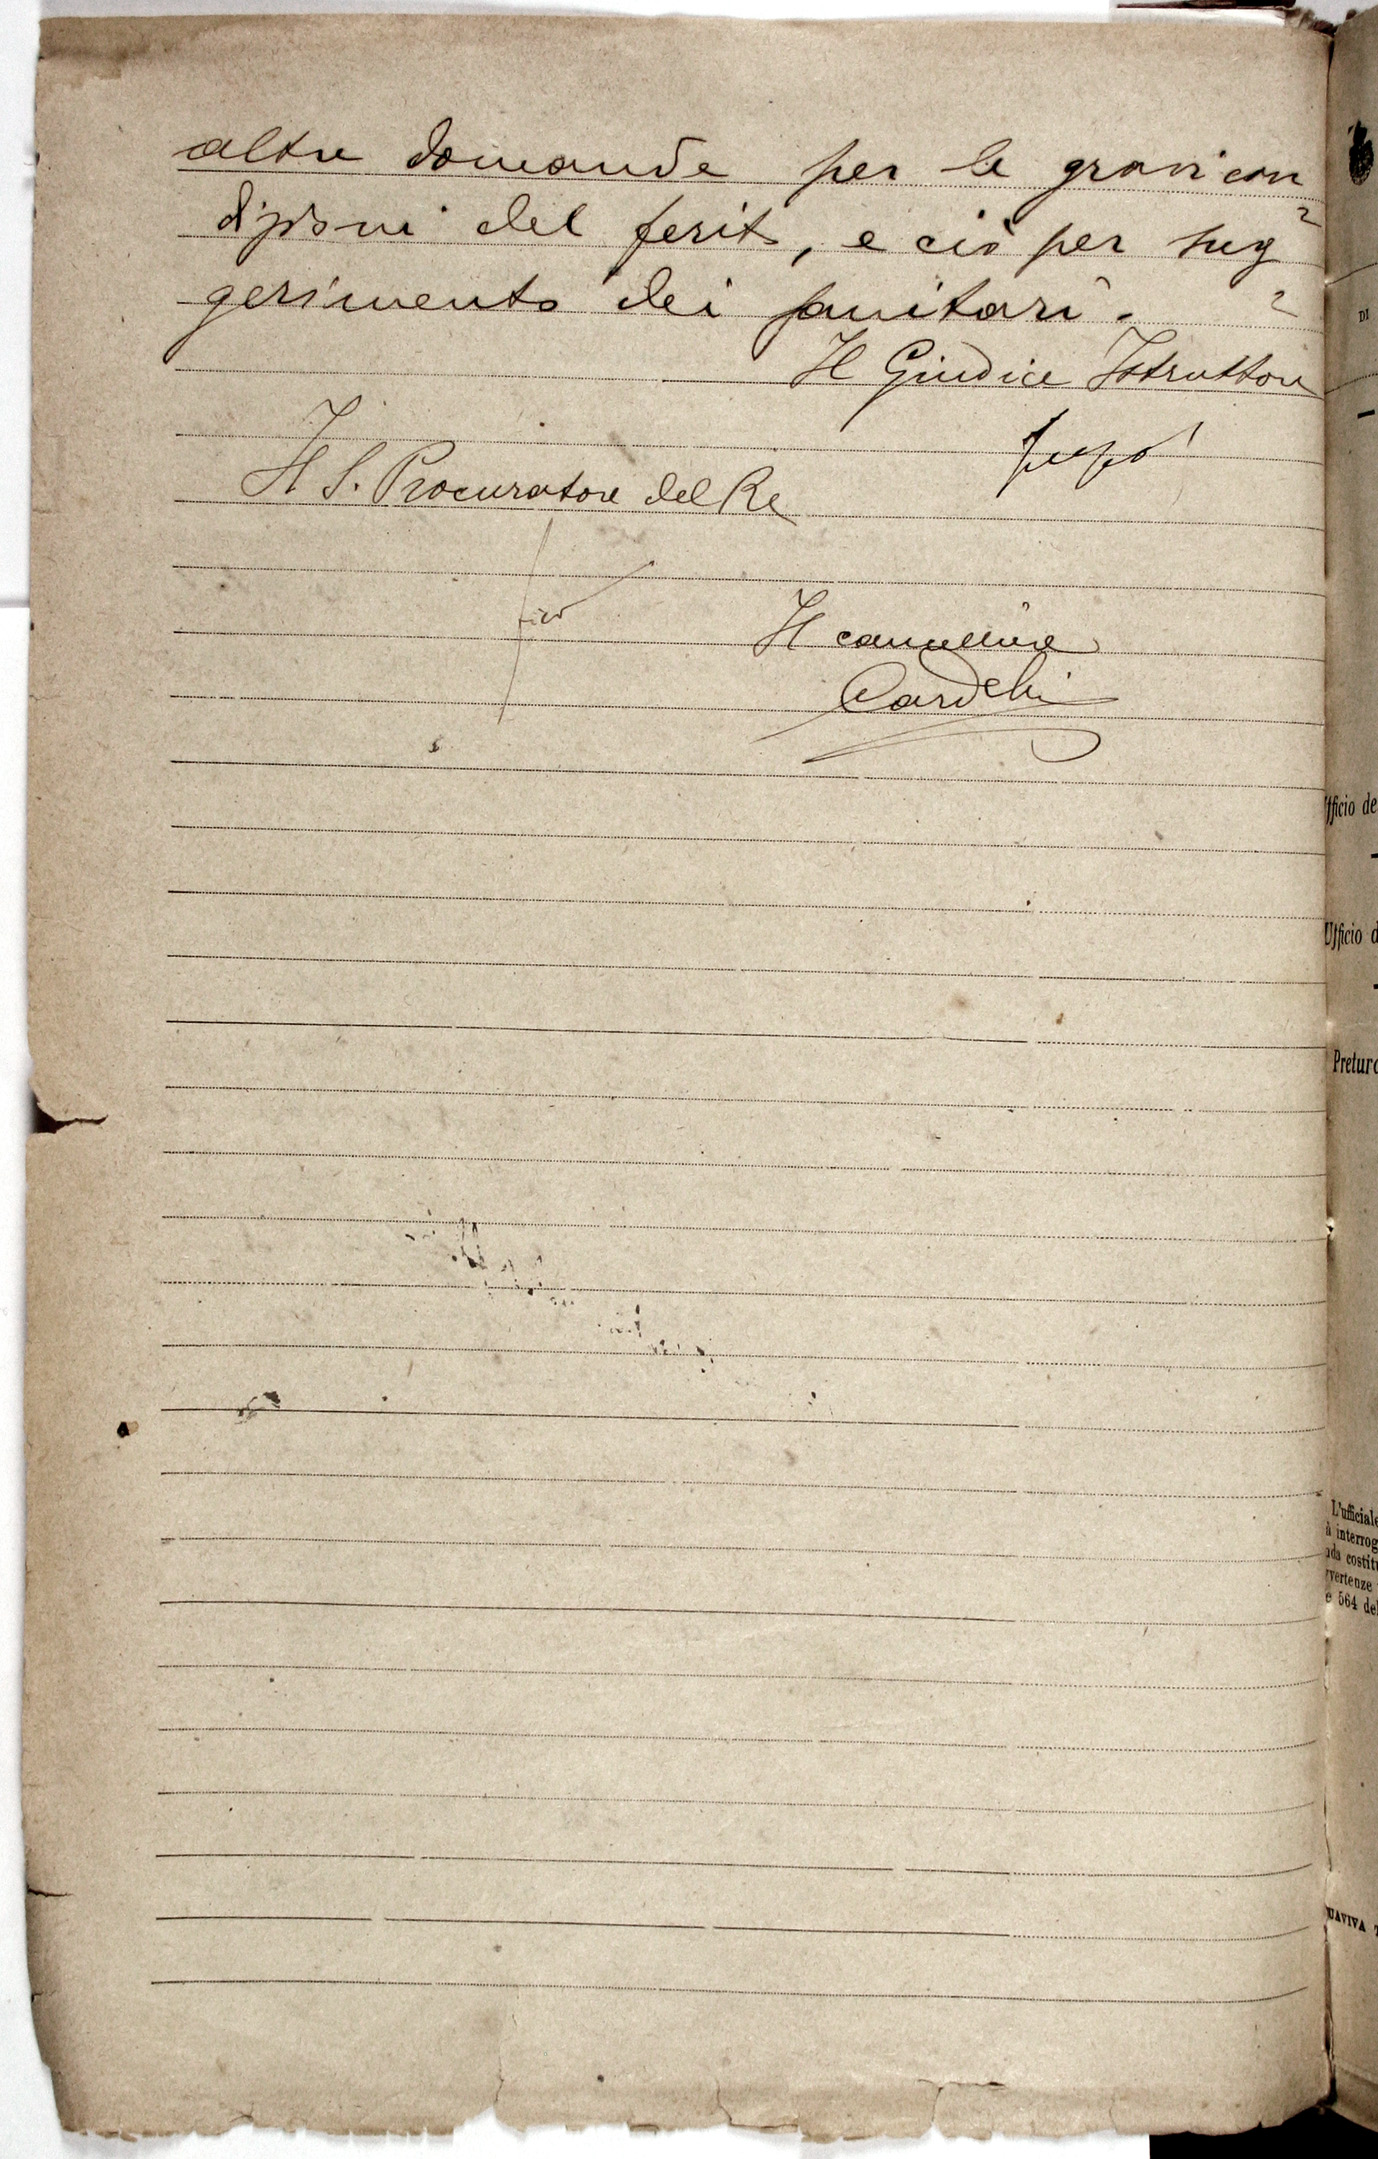 altre domande per le gravi con
dizioni del ferito, e ciò per sug
gerimento dei sanitari.
Il Giudice Istruttore
Il S. Procuratore del Re
Il cancelliere
DI
Ufficio de
Ufficio d
Pretura
L'ufficiale
à interrog
nda costitu
vvertenze
e 564 del
UAVIVA